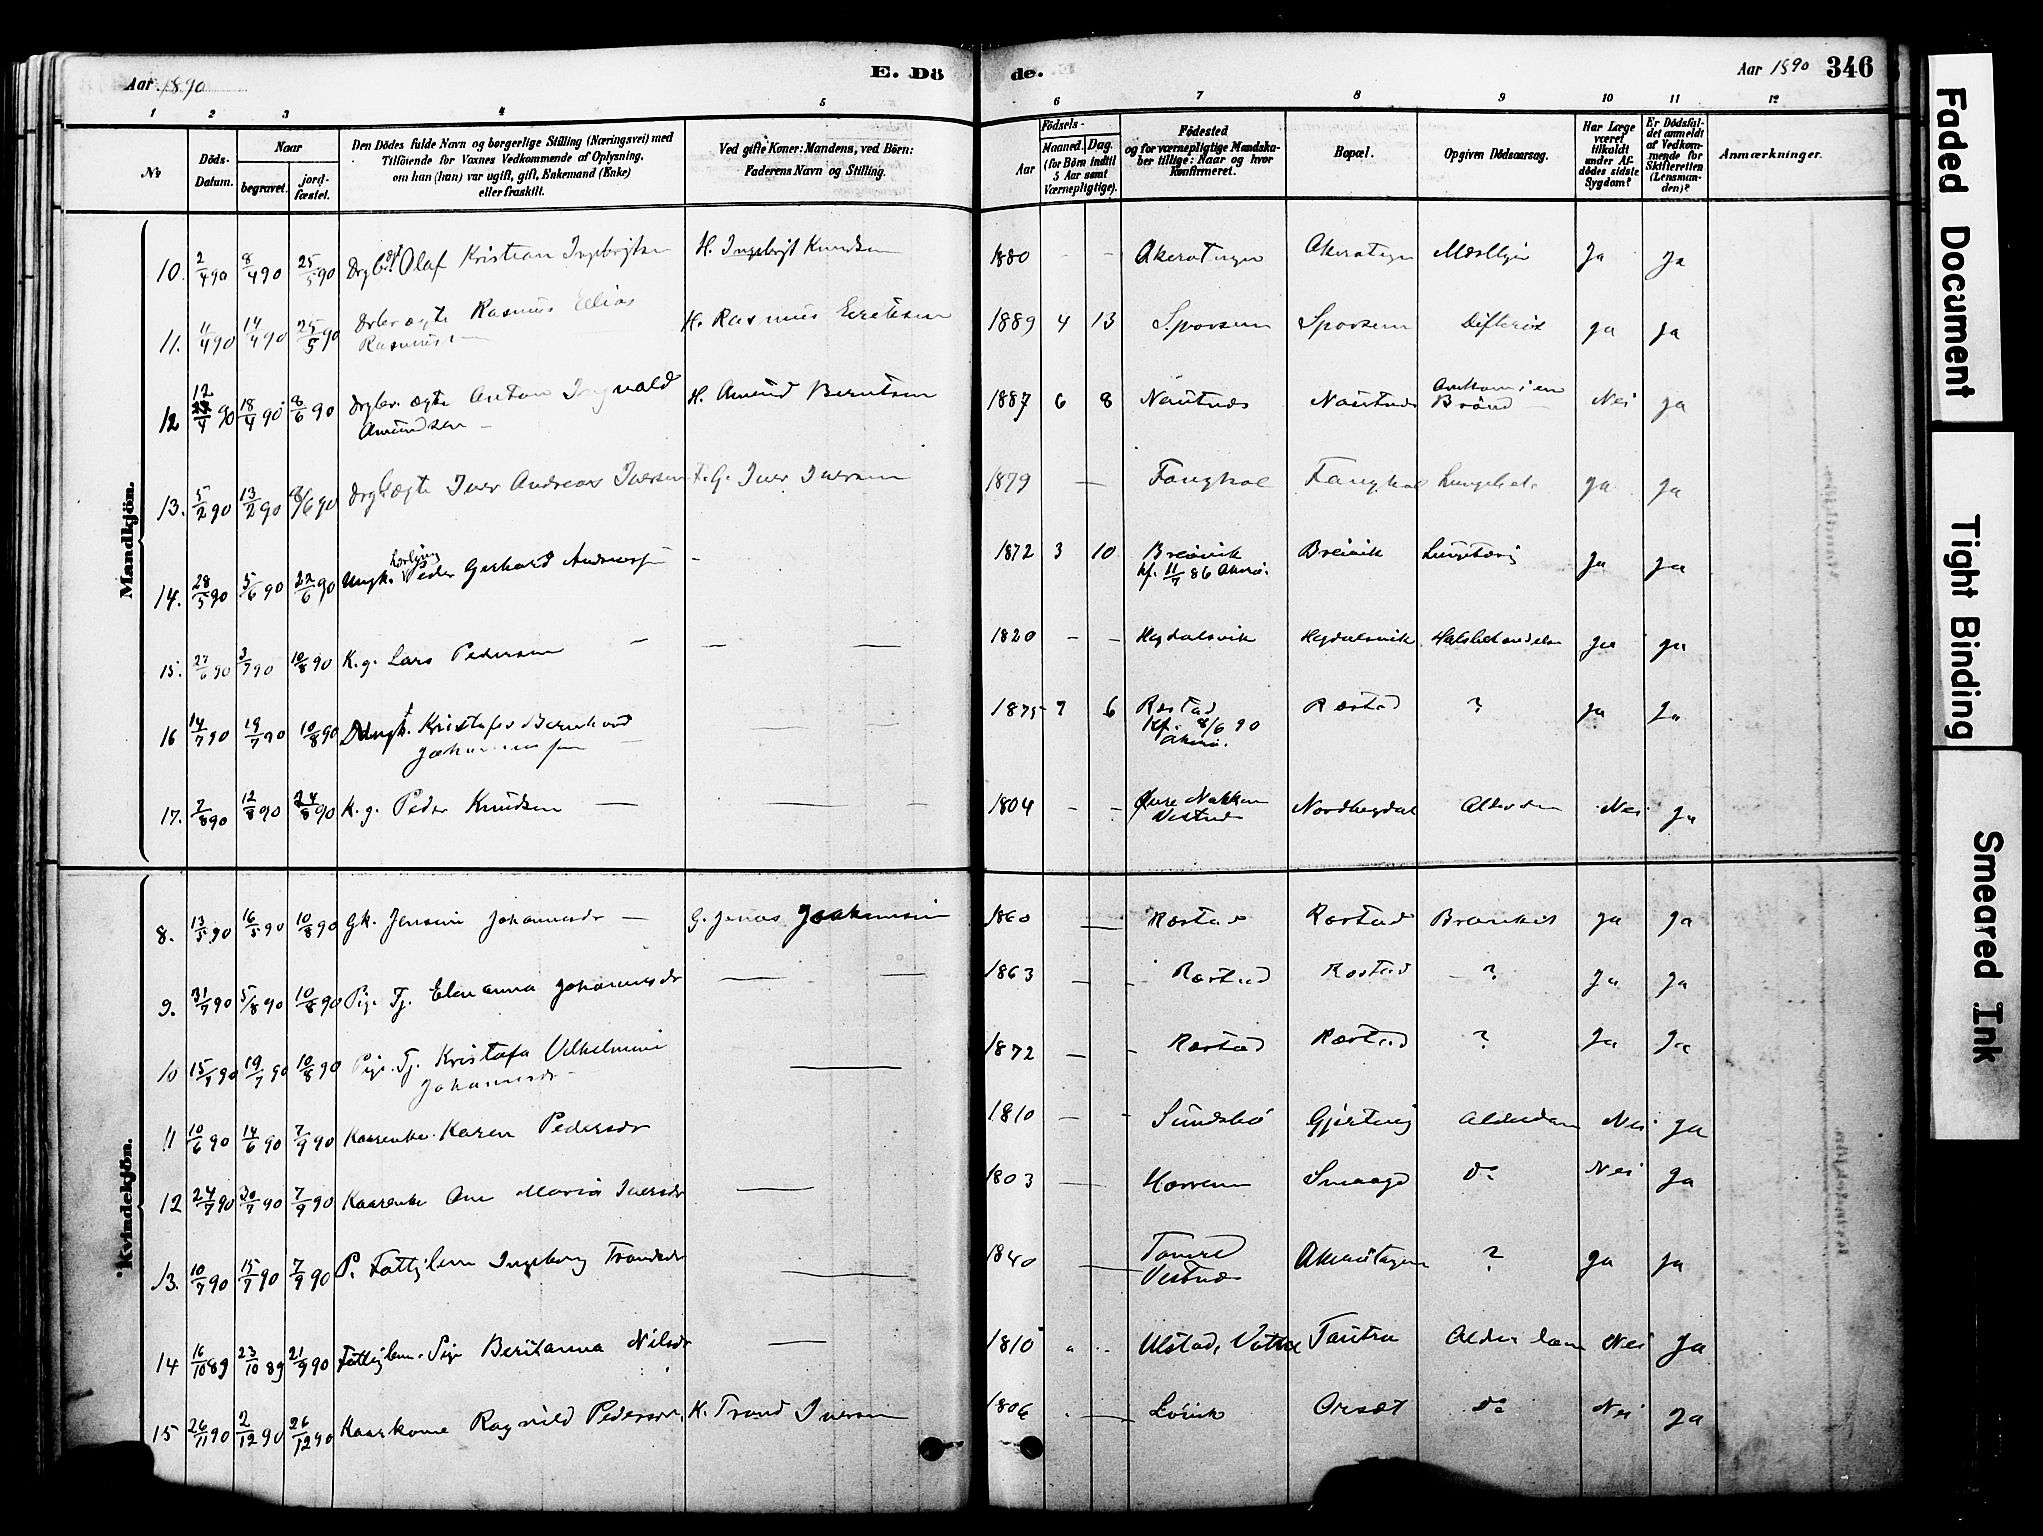 Aar 1890
E. Dö
de.
Aar 1890 346
1 2 3 4 5 6 7 8 9 10 11 12
No
Döds-Datum.
Naar
begravet. jord-fæstet.
Den Dödes fulde Navn og borgerlige Stilling (Næringsvei) med
Tilföiende for Voxnes Vedkommende af Oplysning,
om han (hun) var ugift, gift, Enkemand (Enke)
eller fraskilt.
Ved gifte Koner: Mandens, ved Börn:
Faderens Navn og Stilling.
Födsels-
Aar
Maaned. Dag.
(for Börn indtil 5 Aar samt Værnepligtige).
Födested
og for værnepligtige Mandska-
ber tillige: Naar og hvor
Konfirmeret.
Bopæl.
Opgiven Dödsaarsag.
Har Læge været tilkaldt under Afdödes sidste Sygdom?
Er Dödsfaldet anmeldt af Vedkommende for Skifteretten (Lensmanden)?
Anmærkninger.
Mandkjön.
10. 2/4 90 8/4 90 25/5 90 Olaf Kristian Ingebrigtsen H. Ingebrigt Knudsen 1880 - - Akerøtangen Akerøtangen Ja Ja
11. 11/4 90 14/4 90 25/5 90 Rasmus Elias
Rasmussen H. Rasmus 1889 4 13 Sporsem Sporsem Difterit Ja Ja
12 12/4 90 18/4 90 8/6 90 ægte Anton Ingvald
Amundsen - H. Amund Berntsen 1887 6 8 Nautnes Nautnes Omkom i en
Brønd Nei Ja
13. 5/2 90 13/2 90 8/6 90 ægte Iver Andreas Iversen Iver Iversen 1879 - Ja Ja
14. 28/5 90 5/6 90 22/6 90 Ungk. Peder Gerhard - 1872 3 10 Breivik
kf. 11/7 86 Akerø. Breivik Ja Ja
15. 27/6 90 3/7 90 10/8 90 K.g. Lars Pedersen - - - 1820 - - Hegdalsvik Hegdalsvik Ja Ja
16 14/7 90 19/7 90 10/8 90 Ungk. Kristofer Bernhard
Johannessen - - 1875 7 6 Røstad
Kf. 8/6 90
Akerø. Røstad ? Ja Ja
17. 7/8 90 12/8 90 24/8 90 K.g. Peder Knudsen - - - 1804 - - Nakken
Vestnes Nordhegdal Nei Ja
Kvindekjön.
8. 13/5 90 16/5 90 10/8 90 Gk. Jensine Johannesdr - G. Jonas 1860 - Røstad Røstad Bronkit Ja Ja
9. 31/7 90 5/8 90 10/8 90 Pige Tj. Elenanna Johannesdr - - 1863 - - Røstad Røstad - ? Ja Ja
10 15/7 90 19/7 90 10/8 90 Pige. Tj. Kristofa Vilhelmine
Johannesdr - - 1872 - - Røstad Røstad ? Ja Ja
11 10/6 90 14/6 90 7/9 90 Kaarenke. Karen Pedersdr 1810 - - Sundsbø Gjertvig Alderdom Nei Ja
12 24/7 90 30/7 90 7/9 90 Kaarenke Ane Maria Iversdr - 1803 - - Smaage Do Nei Ja
13. 10/7 90 15/7 90 7/9 90 P. Fattiglem Ingeborg - 1840 - Tomre
Vestnes Akerøtangen ? Ja Ja
14 16/10 89 23/10 89 21/9 90 Fattiglem. Pige Beritanna Nilsdr - 1810 " " Ulstad, Tautra Alderdom Nei Ja
15 26/11 90 2/12 90 26/12 90 Kaarkone Ragnild Pedersdr. K. Trond Iversen 1806 - Orset Do Nei Ja
Faded Document
Tight Binding
Smeared Ink